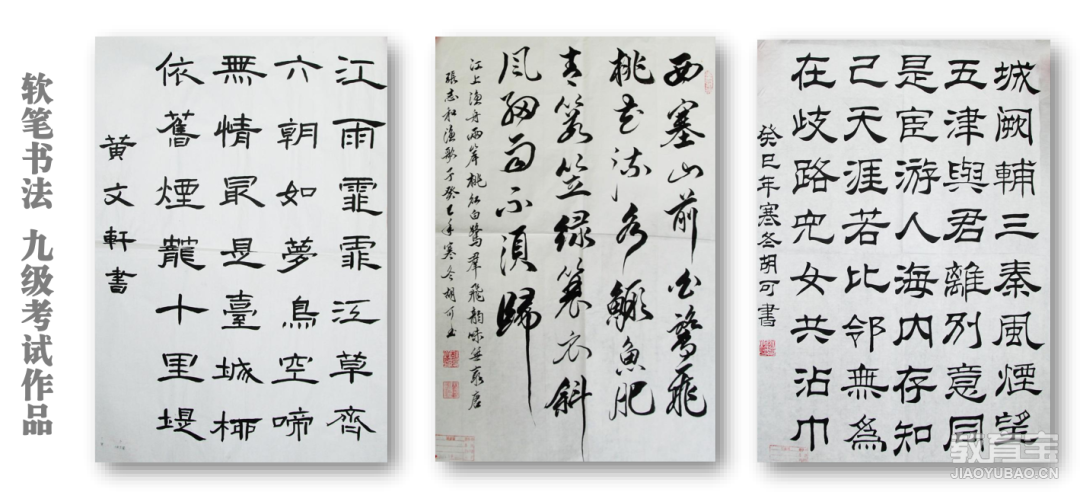 软笔书法 九级考试作品
江雨霏霏江草齊
六朝如夢鳥空啼
無情最是臺城柳
依舊煙龍十里堤
黄文軒書
西塞山前白鷺飛
桃花流水鱖魚肥
青箬笠绿蓑衣斜
風細雨不須歸
江上漁舟兩岸桃红白鹭羣飛韵味無窮唐
張志和漁歌子癸巳年寒冬胡可書
城闕輔三秦風煙望
五津與君離别意同
是宦游人海内存知
己天涯若比邻無爲
在歧路兒女共沾巾
癸巳年寒冬胡可書
教育宝
JIAOYUBAO.CN